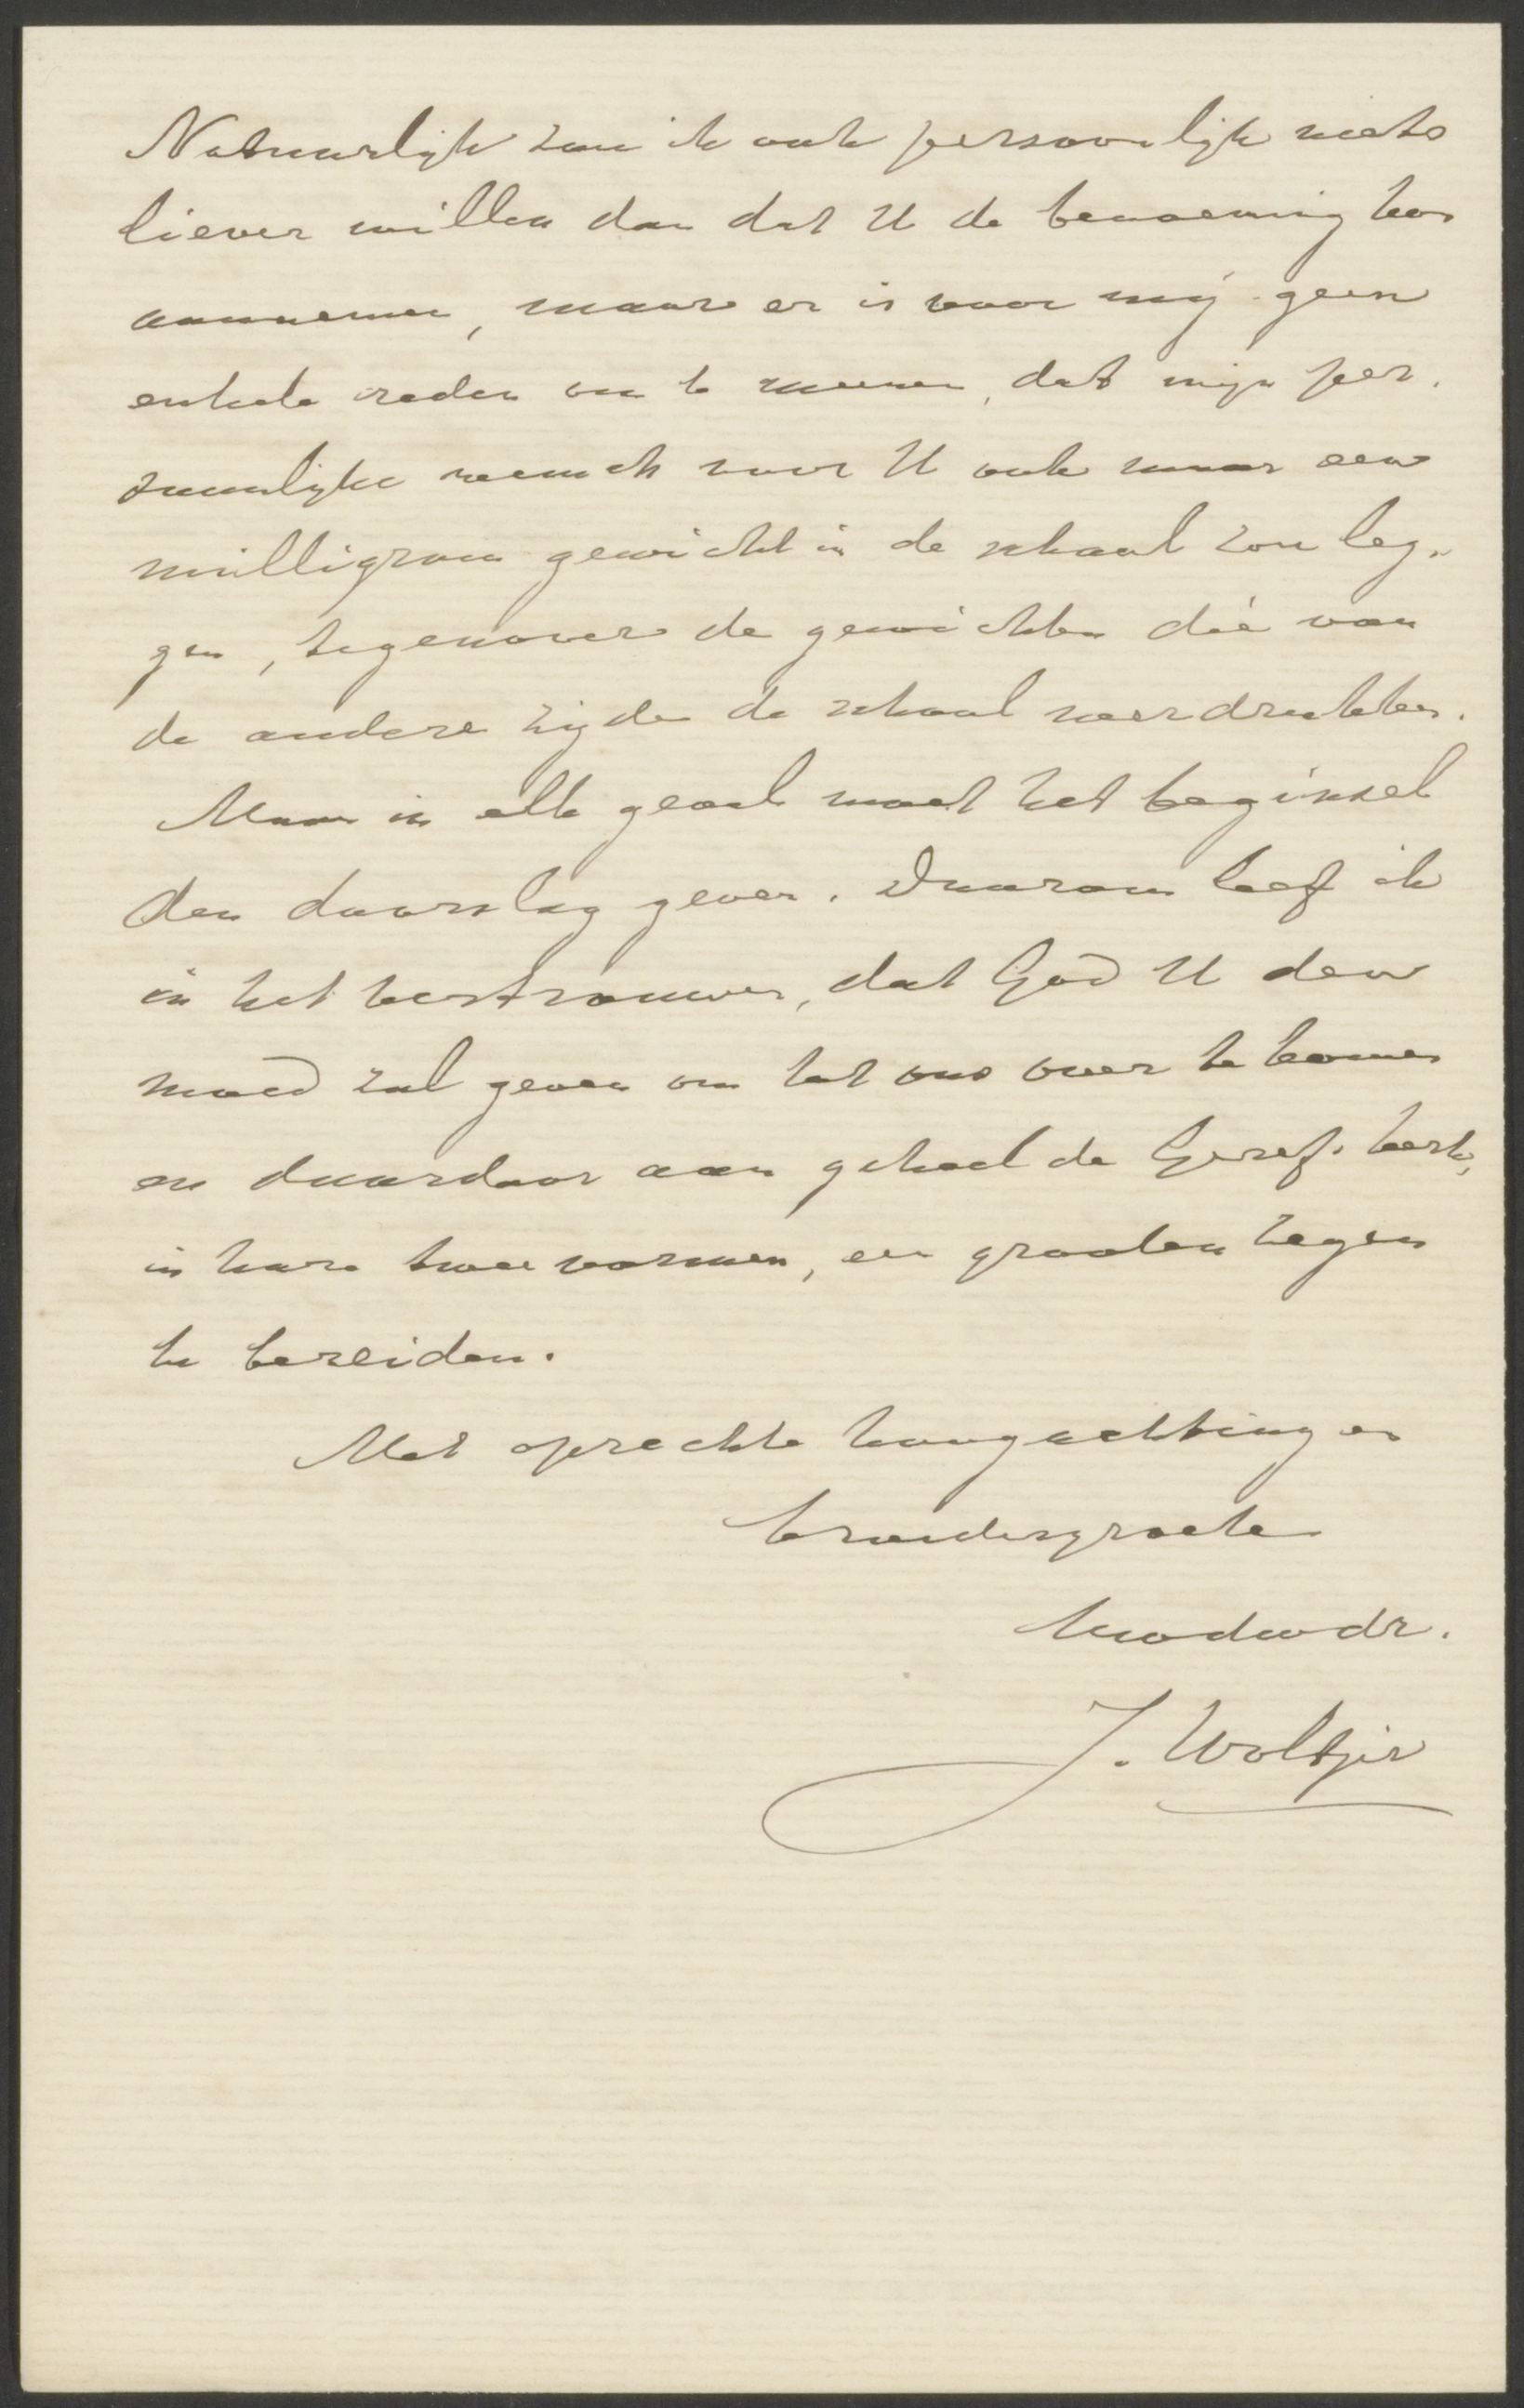 Natuurlijk zou ik ook persoonlijk niets
liever willen dan dat U de benoeming kon
aannemen, maar er is voor mij geen
enkele reden om te meenen, dat mijn per-
soonlijke wensch voor U ook maar een
milligram gewicht in de schaal zou leg-
gen, tegenover de gewichten die van
de andere zijde de schaal neerdrukken.
Maar in elk geval moet het beginsel
den doorslag geven. Daarom leef ik
in het vertrouwen, dat God U den
moed zal geven om tot ons over te komen
en daardoor aan geheel de Geref. kerk,
in hare twee vormen, een grooten zegen
te bereiden.
Met oprechte hoogachting en
broedergroeten
Uw dw dr.
J. Woltjer